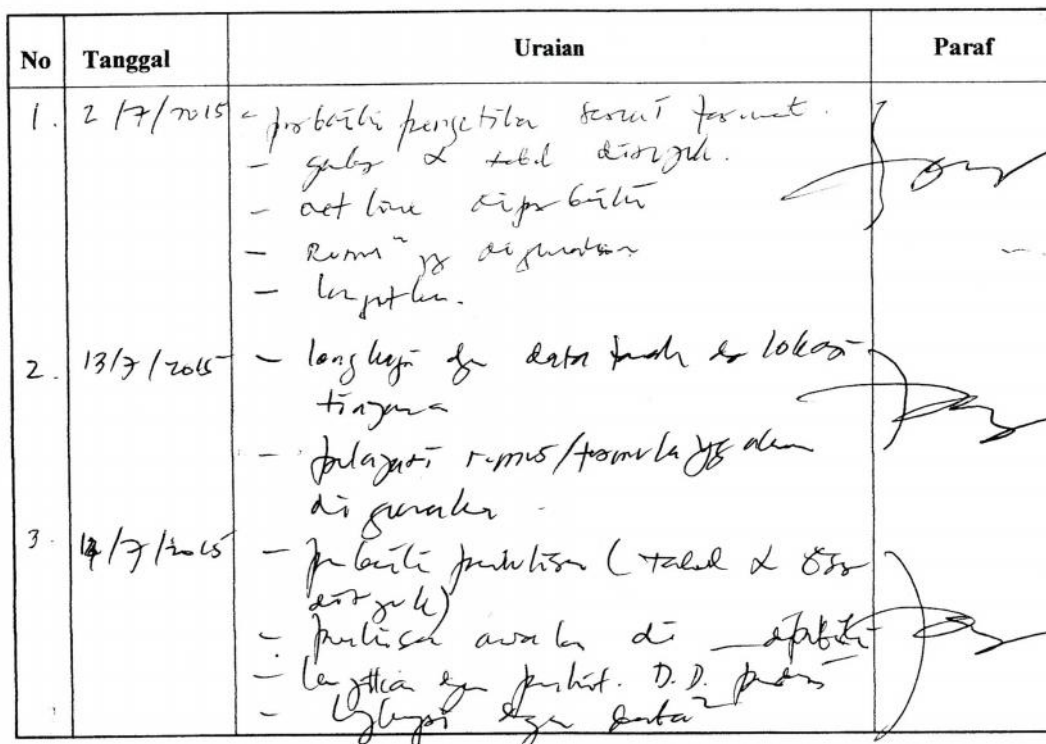 No Tanggal Uraian Paraf
1. 2/7/2015 - perbaiki pengetikan sesuai format.
- & tabel dirujuk.
- out line diperbaiki
- Rumus" yg digunakan
- lanjutkan.
2. 13/7/2015 - lengkapi dgn data tanah di lokasi
tinjauan
- pelajari rumus/formula yg akan
di gunakan.
3. 14/7/2015 - perbaiki penulisan (tabel &
dirujuk)
- penulisan di
- lanjutkan dgn D.D.
- lengkapi dgn data2